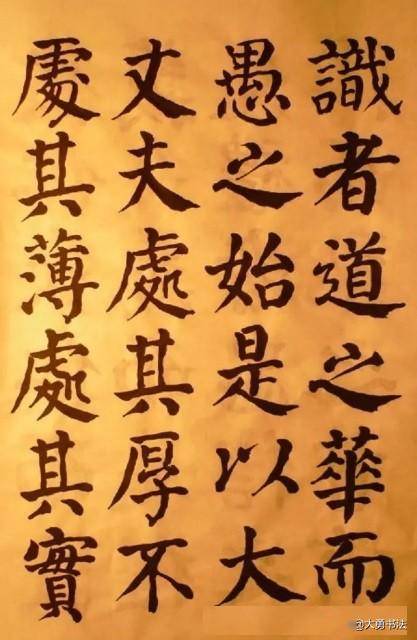 識者道之華而
愚之始是以大
丈夫處其厚不
處其薄處其實
@大勇书法